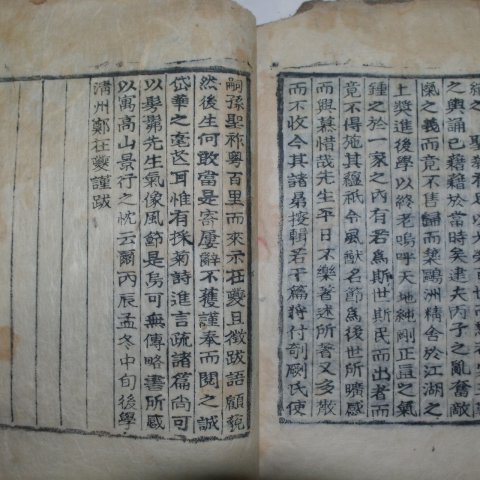 之輿誦已藉藉於當時矣逮夫丙子之亂奮敵
愾之義而竟不售歸而築鷗洲精舍於江湖之
上奬進後學以終老嗚呼天地純剛正直之氣
鍾之於一家之內有若爲斯世斯民而出者而
竟不得施其蘊祇令風猷名節爲後世所曠感
而興慕惜哉先生平日不樂著述所著又多散
而不收今其諸弟掇輯若干篇將付剞劂氏使
嗣孫聖祚粤百里而來示在夔且徵跋語顧藐
然後生何敢當是寄屢辭不獲謹奉而閱之誠
岱華之毫芒耳惟有採菊詩進言疏諸篇尚可
以髣髴先生氣像風節是烏可無傳略書所感
以寓高山景行之忱云爾丙辰孟冬中旬後學
淸州鄭在夔謹跋